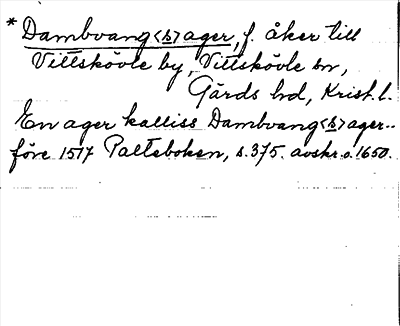 * Dambvang<s>ager, f. åker till
Vittskövle by, Vittskövle sn,
Gärds hd, Krist. l.
En ager kalliss Dambvang<s>ager..
före 1517 Palteboken, s. 375. avskr. o. 1650.